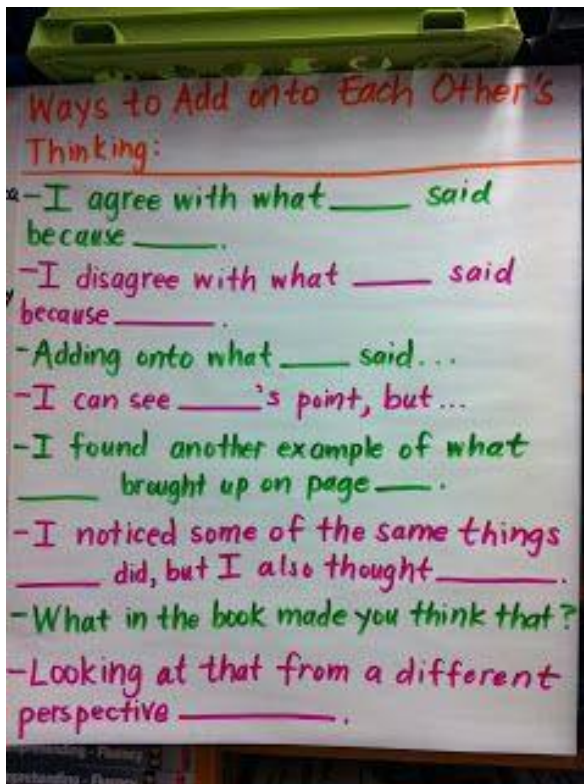 Ways to Add onto Each Other's
Thinking:
-I agree with what____ said
because _____.
-I disagree with what ____ said
because______.
-Adding onto what ____ said...
-I can see _____'s point, but...
-I found another example of what
_____ brought up on page___.
-I noticed some of the same things
_____ did, but I also thought_______.
-What in the book made you think that?
-Looking at that from a different
perspective _________.
prehending - Fluency